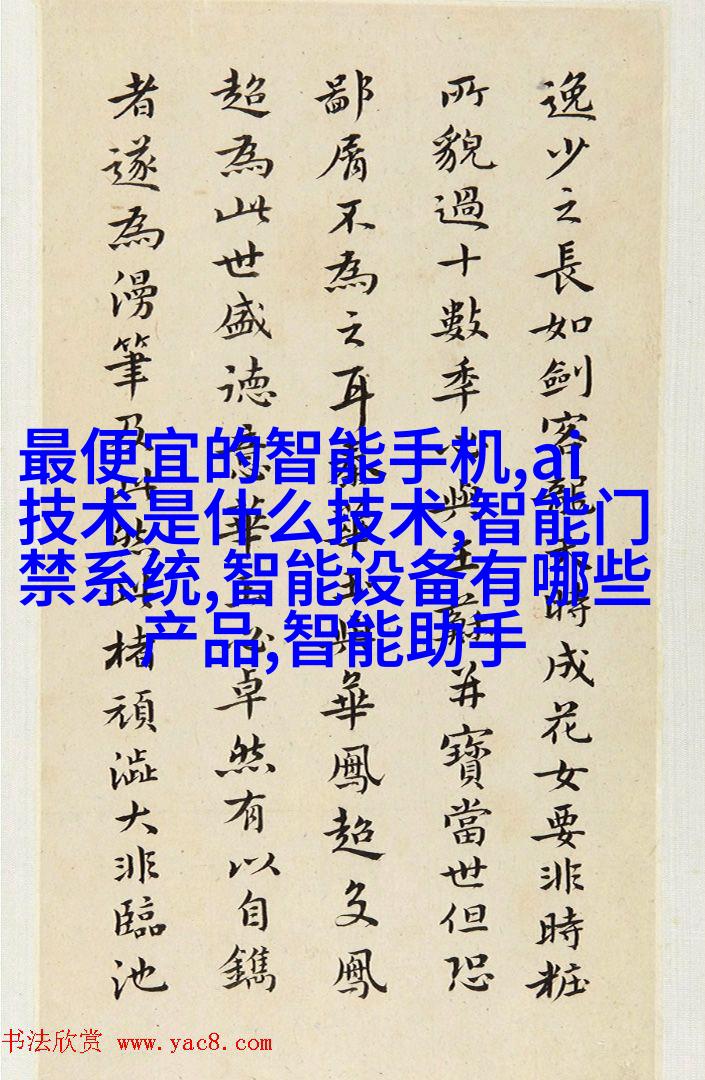 逸少之長如劍客時成花女要非時粧
所貌過十數季與王并寶當世但恐
鄙屑不為之耳與華鳳超文鳳
超為此世盛德卓然有以自鐫
者遂為漫筆及然楮頑澁大非臨池
最便宜的智能手机,ai
技术是什么技术,智能门
禁系统,智能设备有哪些
产品,智能助手
书法欣赏 www.yac8.com